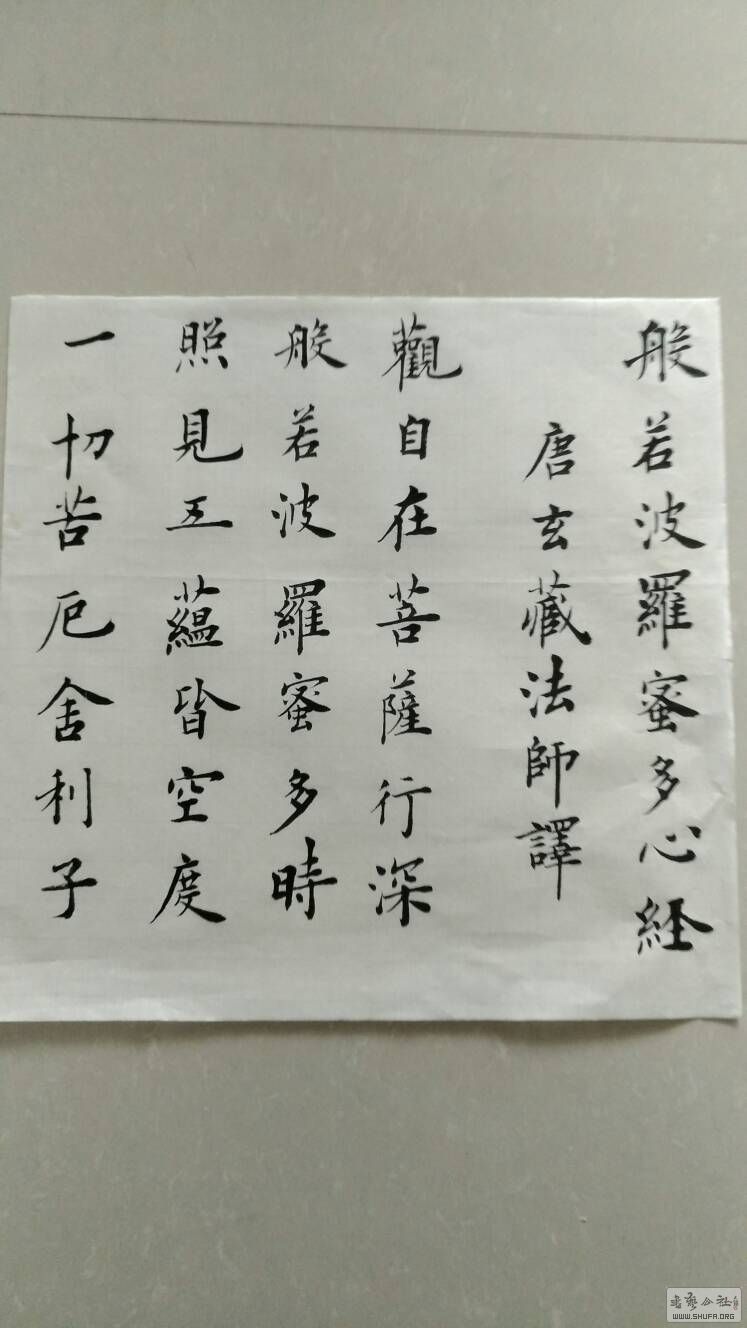 般若波羅蜜多心経
唐玄藏法師譯
觀自在菩薩行深
般若波羅蜜多時
照見五蘊皆空度
一切苦厄舍利子
WWW.SHUFA.ORG